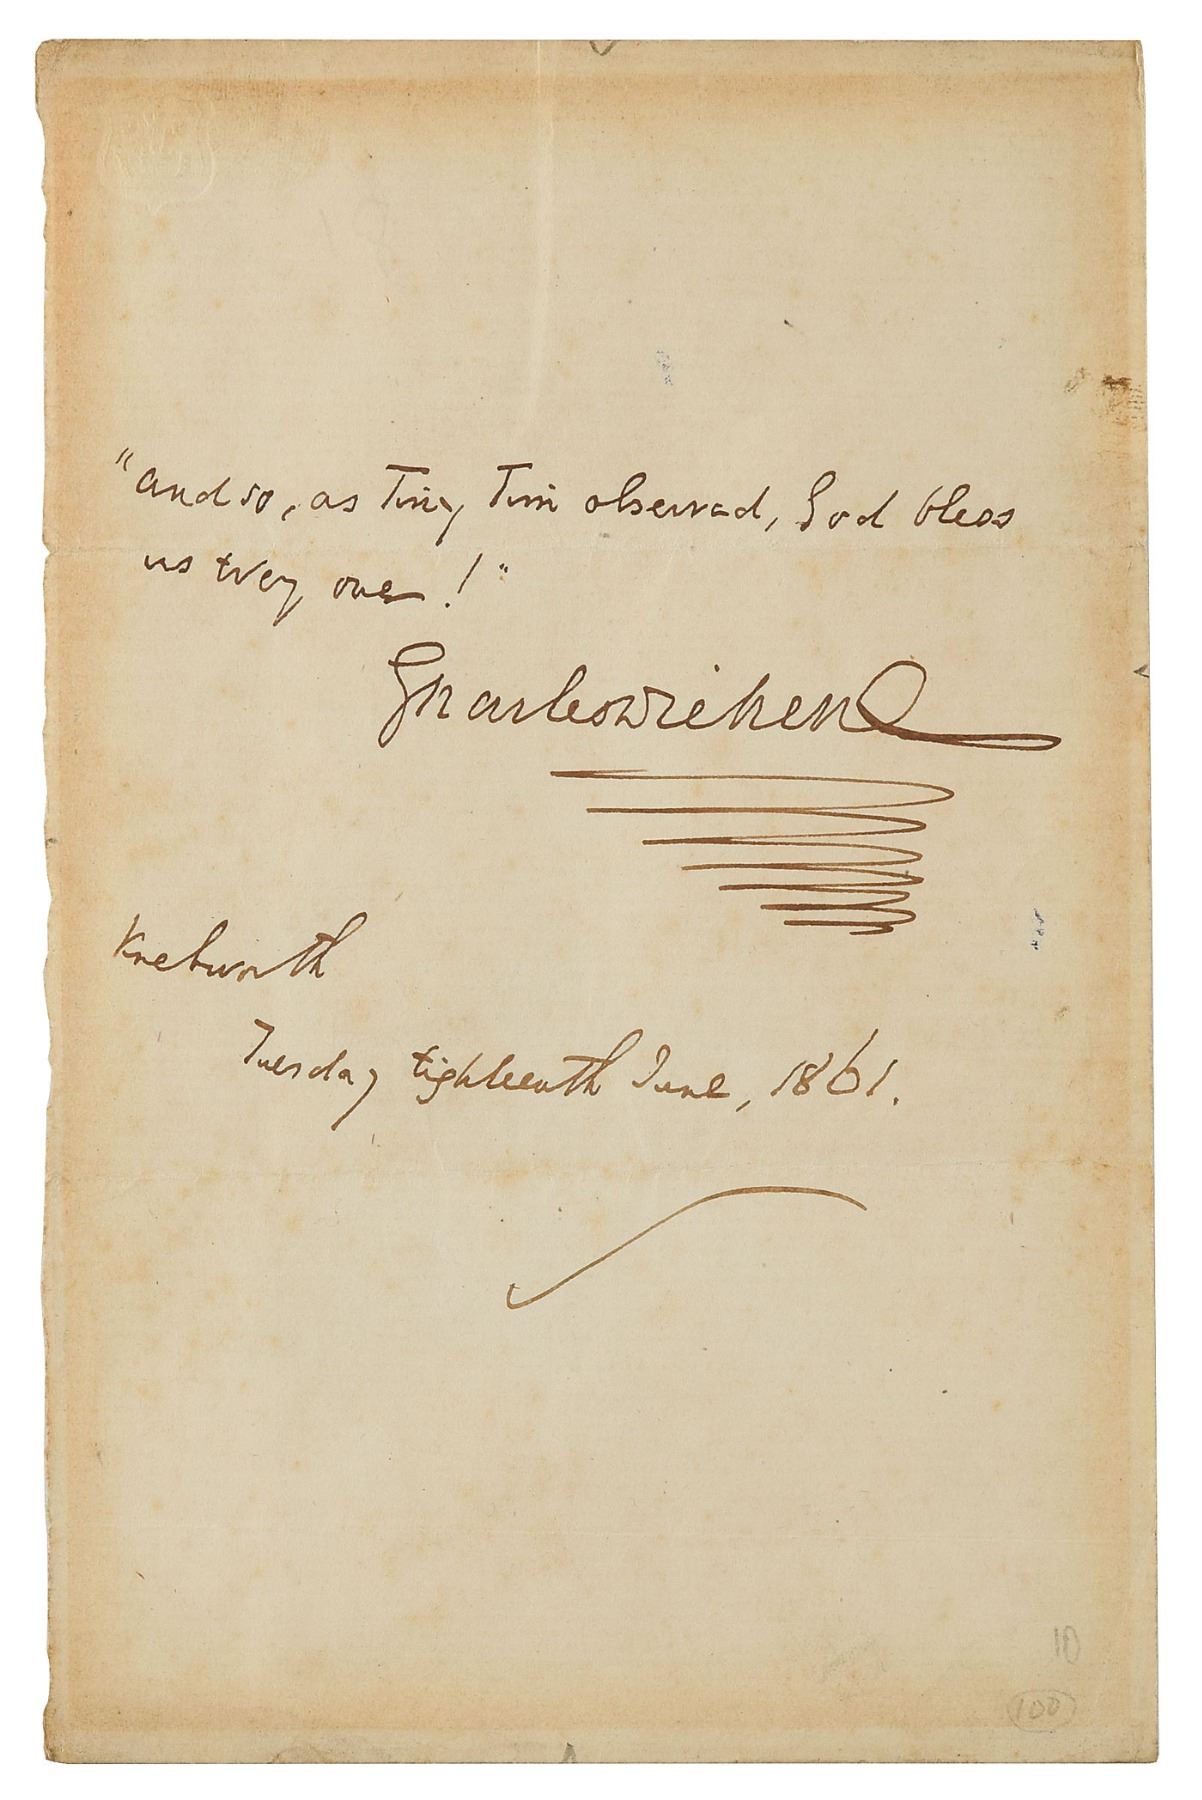 "and so, as Tiny Tim observed, God bless
us Every one!"
Charles Dickens
Knebworth
Tuesday Eighteenth June, 1861.
10
100